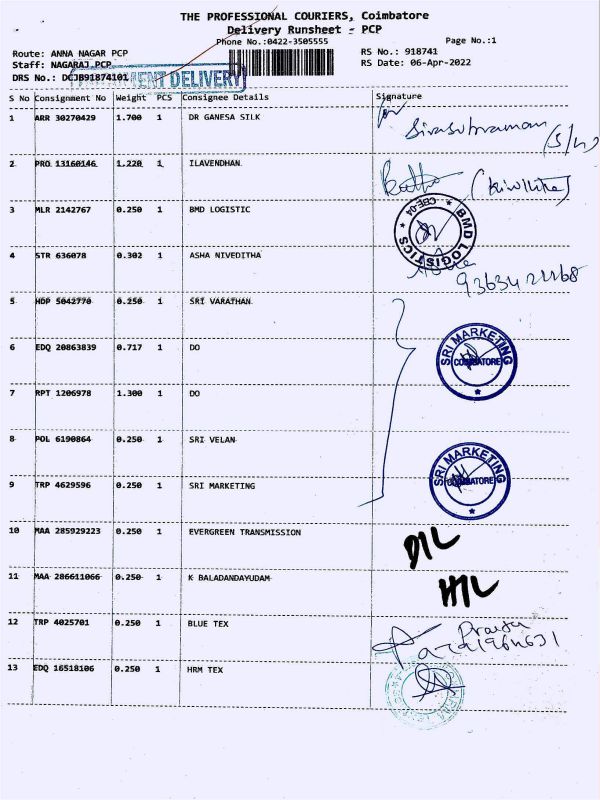 THE PROFESSIONAL COURIERS, Coimbatore
Delivery Runsheet - PCP
Phone No.:0422-3505555
Page No.:1
Route: ANNA NAGAR PCP
RS No.: 918741
Staff: NAGARAJ PCP
RS Date: 06-Apr-2022
DRS No.: DCJB91874101
DELIVERY
S No Consignment No Weight PCS Consignee Details Signature
1 ARR 30270429 1.700 1 DR GANESA SILK
Sivasubramani
2 PRO 13160146 1.220 1 ILAVENDHAN
3 MLR 2142767 0.250 1 BMD LOGISTIC
BMD LOGISTICS CBE-04
4 STR 636078 0.302 1 ASHA NIVEDITHA
5 HDP 5042770 0.250 1 SRI VARATHAN
6 EDQ 20863839 0.717 1 DO
SRI MARKETING COIMBATORE
7 RPT 1206978 1.300 1 DO
8 POL 6190864 0.250 1 SRI VELAN
9 TRP 4629596 0.250 1 SRI MARKETING
SRI MARKETING COIMBATORE
10 MAA 285929223 0.250 1 EVERGREEN TRANSMISSION
D/L
11 MAA 286611066 0.250 1 K BALADANDAYUDAM
H/L
12 TRP 4025701 0.250 1 BLUE TEX
13 EDQ 16518106 0.250 1 HRM TEX